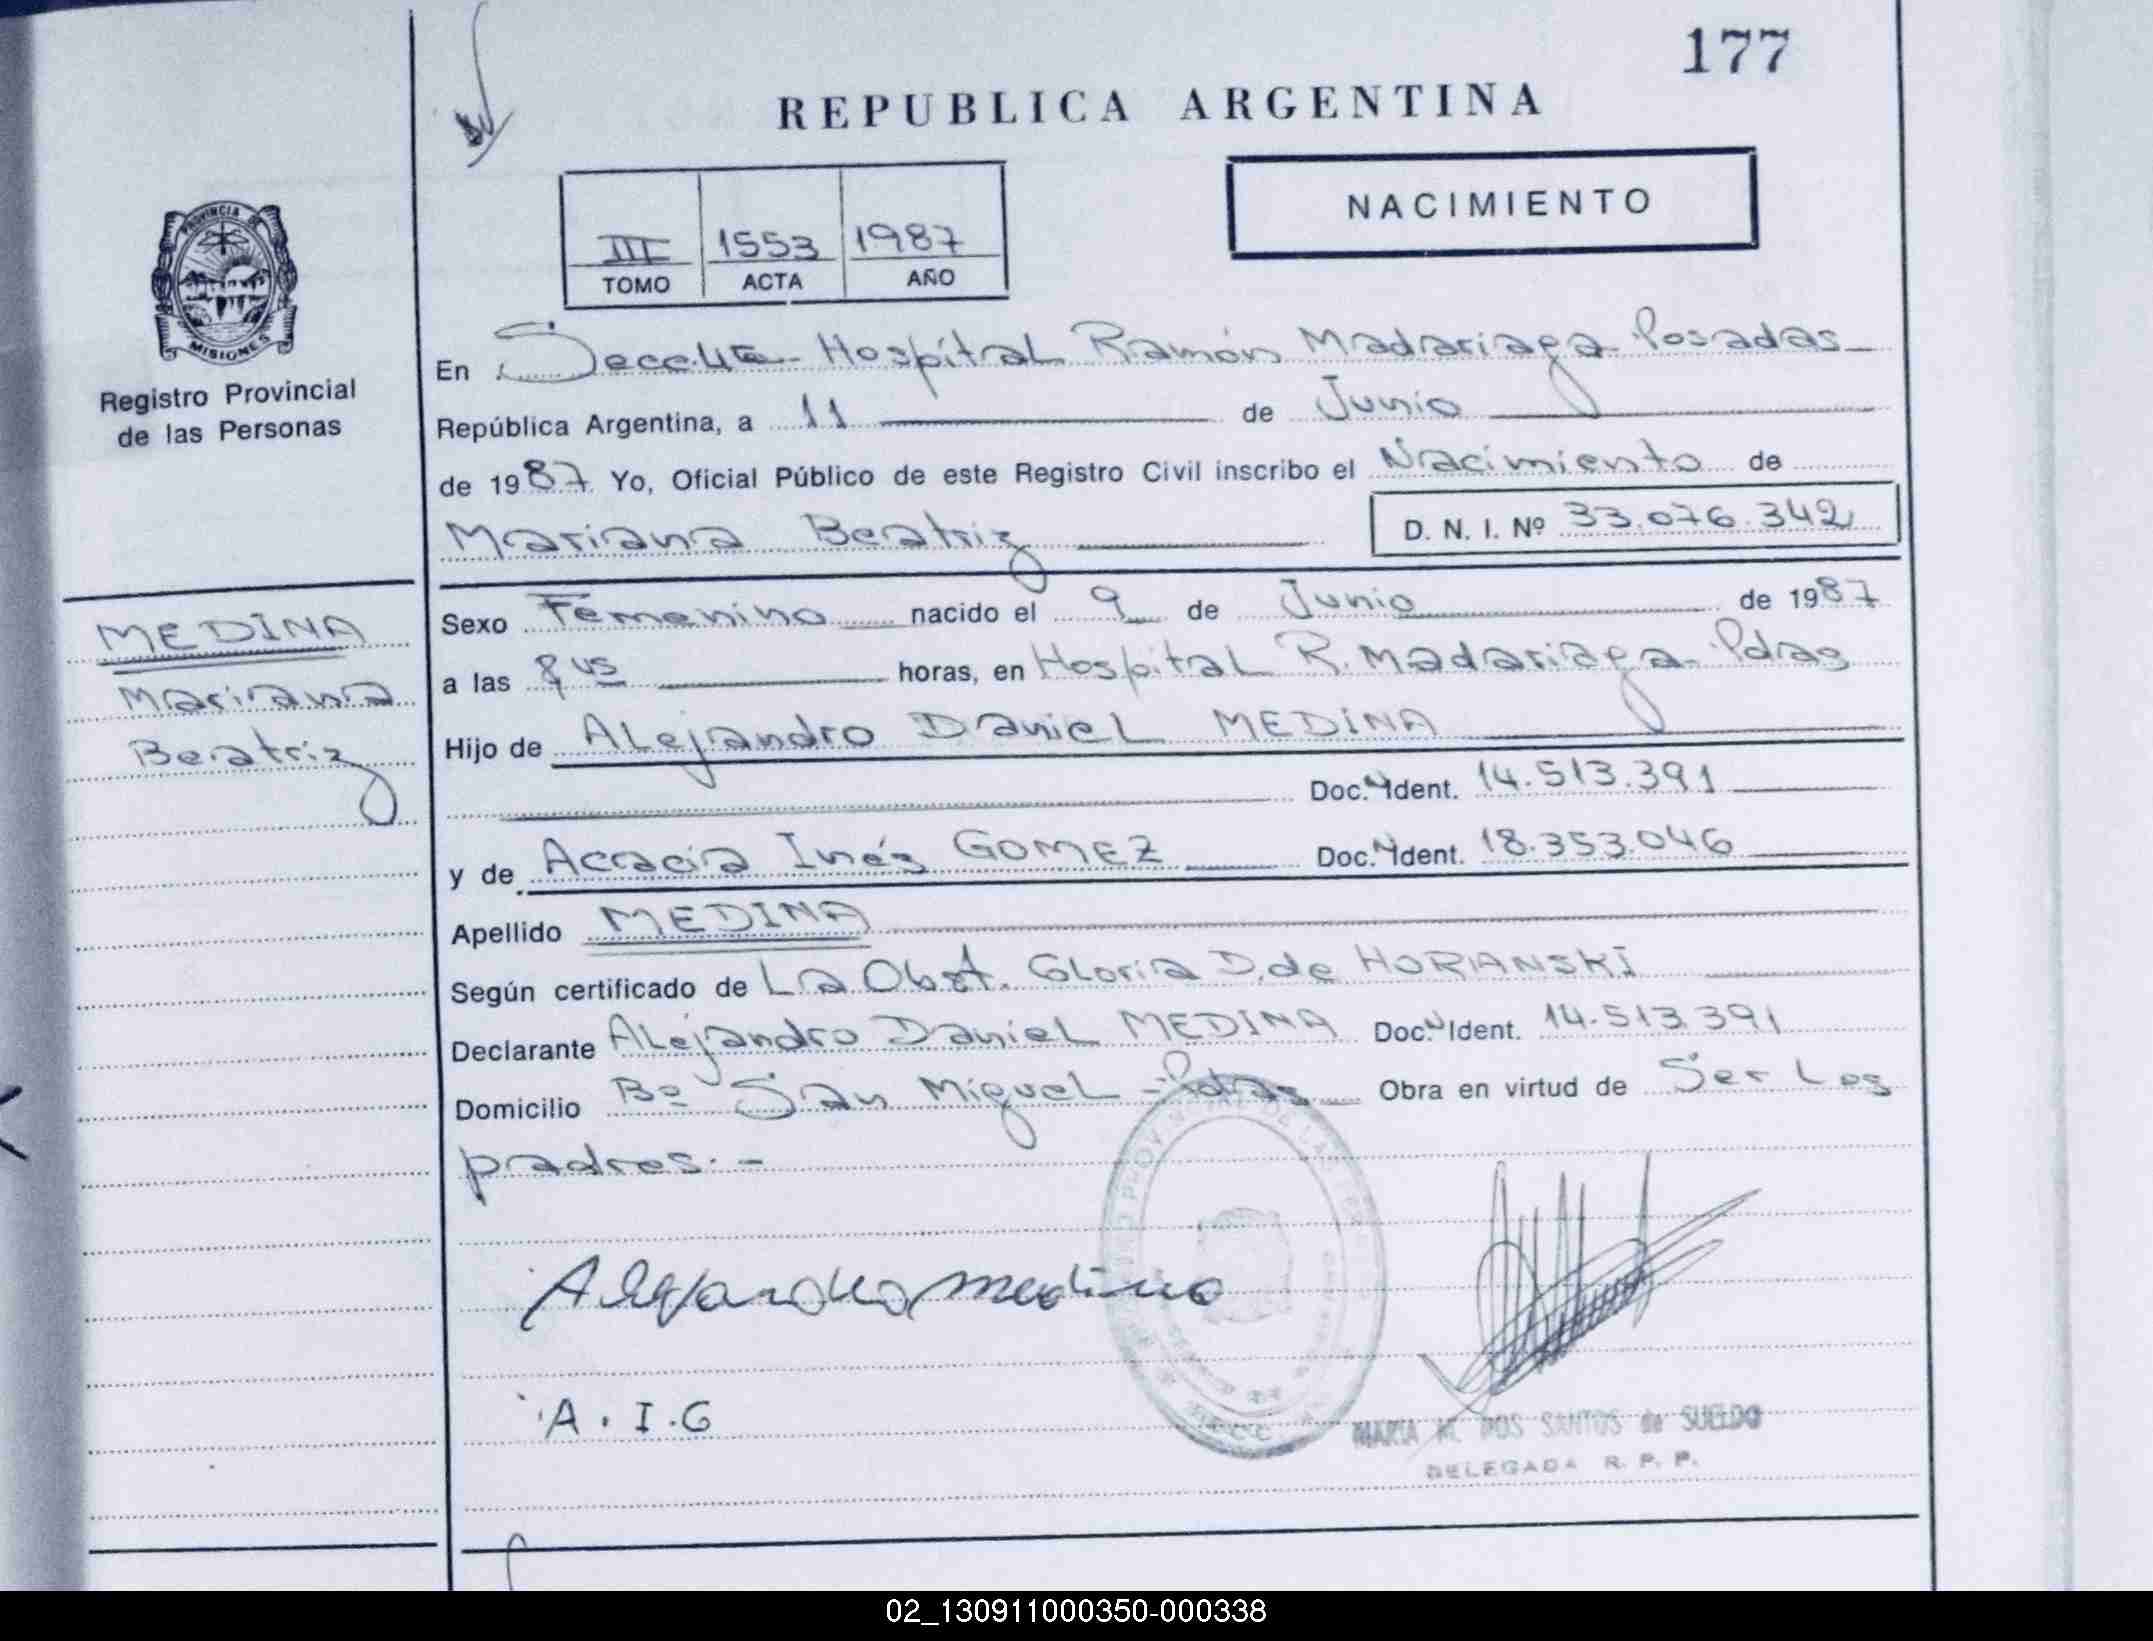 177
REPUBLICA ARGENTINA
NACIMIENTO
III 1553 1987
TOMO ACTA AÑO
PROVINCIA DE
MISIONES
Registro Provincial
de las Personas
En Secc. 4ta Hospital Ramón Madariaga Posadas
República Argentina, a 11 de Junio
de 1987 Yo, Oficial Público de este Registro Civil inscribo el Nacimiento de
Mariana Beatriz D. N. I. Nº 33.076.342
MEDINA
Mariana
Beatriz
Sexo Femenino nacido el 9 de Junio de 1987
a las horas, en Hospital R. Madariaga Pdas
Hijo de Alejandro Daniel MEDINA
Doc. N Ident. 14.513.391
y de Acracia Inés GOMEZ Doc. N Ident. 18.353.046
Apellido MEDINA
Según certificado de La Obst. Gloria D. de HORIANSKI
Declarante Alejandro Daniel MEDINA Doc. N Ident. 14.513.391
Domicilio Bº San Miguel - Pdas Obra en virtud de Ser Los
padres.-
Alejandro medina
A. I. G
MARIA M. DOS SANTOS de SUELDO
DELEGADA R. P. P.
02_130911000350-000338